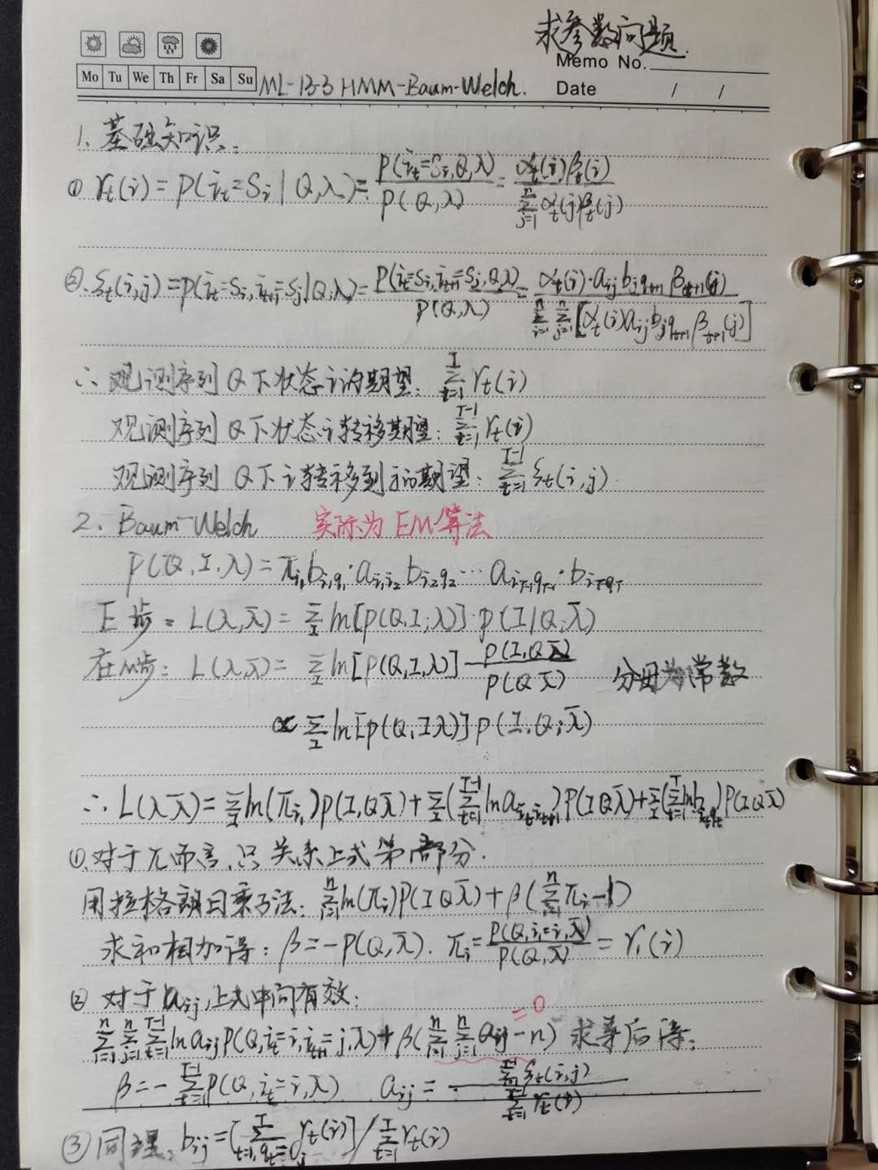 求参数问题.
Memo No.
Mo Tu We Th Fr Sa Su ML-13-3 HMM-Baum-Welch. Date / /
1. 基础知识:
① γt(i) = P(it=Si | Q,λ) = P(it=Si,Q,λ) / P(Q,λ) = αt(i)βt(i) / Σ_{j=1}^{n} αt(j)βt(j)
②. ξt(i,j) = P(it=Si, it+1=Sj | Q,λ) = P(it=Si, it+1=Sj, Q,λ) / P(Q,λ) = αt(i)·aij bjqt+1 βt+1(j) / Σ_{i=1}^{n} Σ_{j=1}^{n} [αt(i)aij bjqt+1 βt+1(j)]
∴ 观测序列 Q下状态i的期望: Σ_{t=1}^{T} γt(i)
观测序列 Q下状态i转移期望: Σ_{t=1}^{T-1} γt(i)
观测序列 Q下i转移到j的期望: Σ_{t=1}^{T-1} ξt(i,j)
2. Baum-Welch 实际为EM算法
P(Q,I,λ) = πi1 bi1q1·ai1i2 bi2q2 ··· aiT-1qT-1·biTqT
E步: L(λ,λ̄) = Σ_I ln[P(Q,I;λ)]·P(I|Q,λ̄)
在M步: L(λ,λ̄) = Σ_I ln[P(Q,I,λ)] P(I,Qλ̄) / P(Qλ̄) 分母为常数
∝ Σ_I ln[P(Q,Iλ)] P(I,Q;λ̄)
∴ L(λλ̄) = Σ_I ln(πi1)P(I,Qλ̄) + Σ_I(Σ_{t=1}^{T-1} ln aitit+1)P(IQλ̄) + Σ_I(Σ_{t=1}^{T} ln bitqt)P(IQλ̄)
①.对于π而言,只关系上式第一部分.
用拉格朗日乘子法: Σ_{i=1}^{n} ln(πi)P(IQλ̄) + β(Σ_{i=1}^{n} πi-1)
求和相加得: β = -P(Q,λ̄). πi = P(Q,i1=i,λ̄) / P(Q,λ̄) = γ1(i)
② 对于aij,上式中间有效:
=0
Σ_{i=1}^{n} Σ_{j=1}^{n} Σ_{t=1}^{T-1} ln aij P(Q,it=i,it+1=j,λ) + β(Σ_{i=1}^{n} Σ_{j=1}^{n} aij-n) 求导后得:
β = -Σ_{t=1}^{T-1} P(Q,it=i,λ) aij = Σ_{t=1}^{T-1} ξt(i,j) / Σ_{t=1}^{T-1} γt(i)
③ 同理: bij = [Σ_{t=1,qt=j}^{T} γt(i)] / Σ_{t=1}^{T} γt(i)